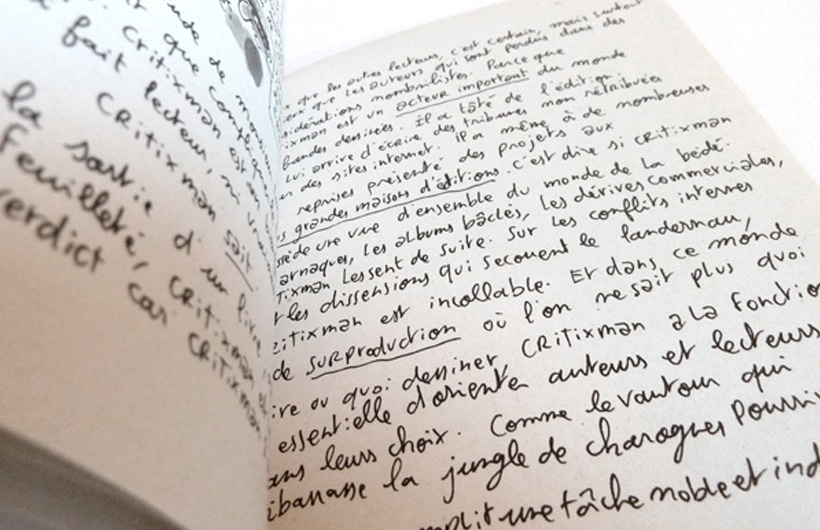 de mon
que comp
Critixman est
fait lecteur, ni
Critixman sait
la sortie d'un livre
feuilleté, Critixman
verdict car Critixman
que les autres lecteurs, c'est certain, mais surtout
que les auteurs qui sont perdus dans des
sidérations nombrilistes. Parce que
ixman est un acteur important du monde
bandes dessinées. Il a tâté de l'édition,
lui arrive d'écrire des tribunes non rétribuées
des sites internet. Il a même, à de nombreuses
reprises présenté des projets aux
s grandes maisons d'éditions. C'est dire si Critixman
ssède une vue d'ensemble du monde de la bédé.
arnaques, les albums bâclés, les dérives commerciales,
Tixman les sent de suite. Sur les conflits internes
t les dissensions qui secouent le landernau,
ritixman est incollable. Et dans ce monde
de surproduction où l'on ne sait plus quoi
ire ou quoi dessiner, Critixman a la fonction
essentielle d'orienter auteurs et lecteurs
ans leurs choix. Comme le vautour qui
ibarrasse la jungle de charognes pourri
mplit une tâche noble et ind